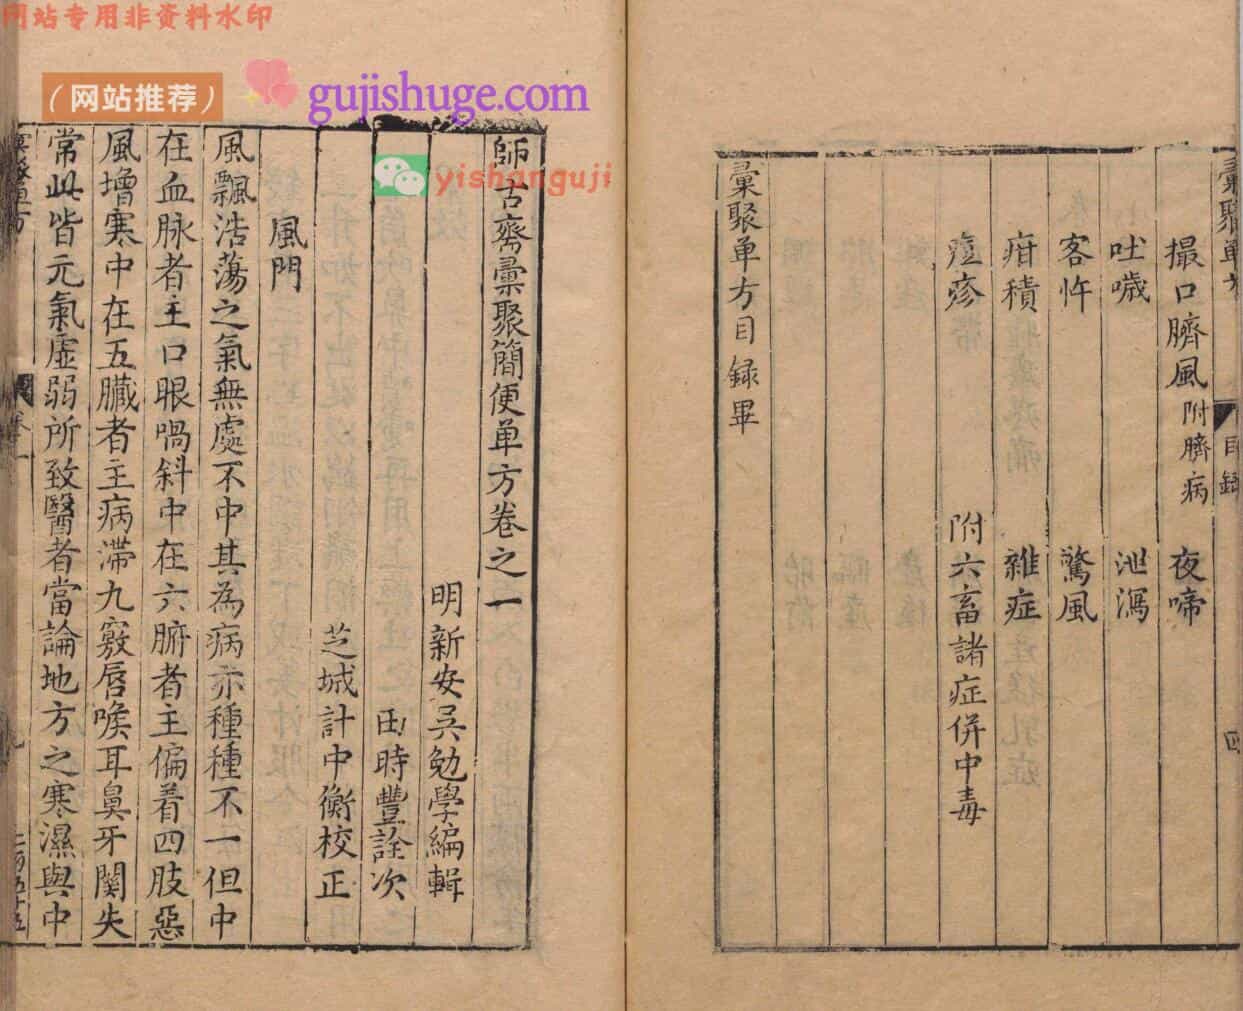 网站专用非资料水印
（网站推荐）
gujishuge.com
yishanguji
彙聚单方
目錄
四
撮口臍風 附臍病 夜啼
吐噦 泄瀉
客忤 驚風
疳積 雜症
痘疹 附六畜諸症併中毒
彙聚单方目録畢
師古齋彙聚簡便单方卷之一
明新安吳勉學編輯
田時豐詮次
芝城計中衡校正
風門
風飄浩蕩之氣無處不中其為病亦種種不一但中
在血脉者主口眼喎斜中在六腑者主偏着四肢惡
風增寒中在五臟者主病滯九竅唇喉耳鼻牙關失
常此皆元氣虛弱所致醫者當論地方之寒濕與中